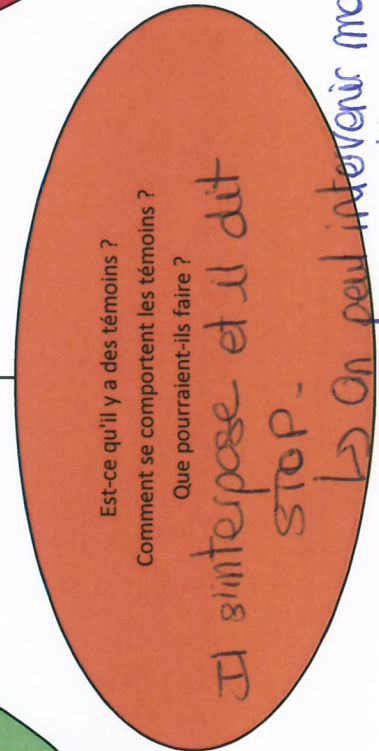 Est-ce qu'il y a des témoins ?
Comment se comportent les témoins ?
Que pourraient-ils faire ?
Il s'interpose et il dit
STOP.
↳ On peut intervenir